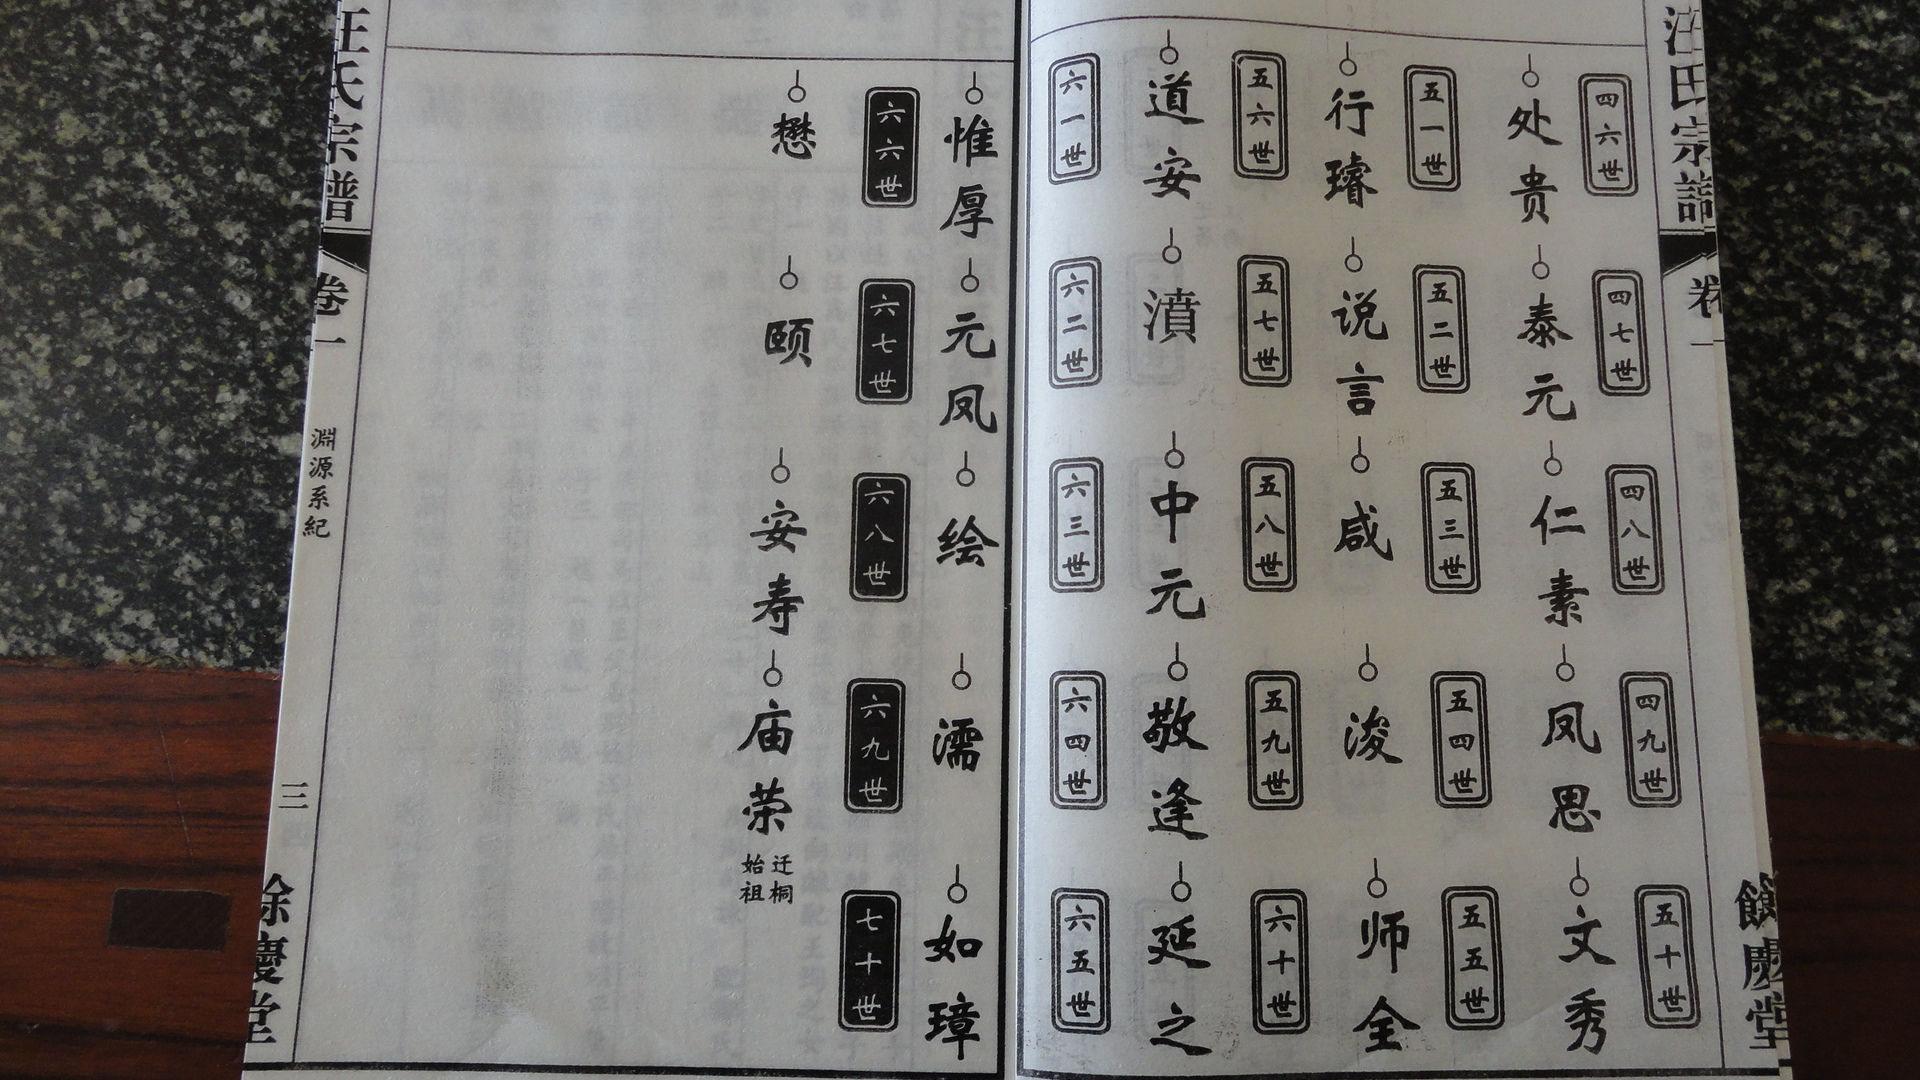 汪氏宗譜
卷一
餘慶堂
四六世
四七世
四八世
四九世
五十世
处贵
泰元
仁素
凤思
文秀
五一世
五二世
五三世
五四世
五五世
行璿
说言
咸
浚
师全
五六世
五七世
五八世
五九世
六十世
道安
濆
中元
敬逢
延之
六一世
六二世
六三世
六四世
六五世
惟厚
元凤
绘
濡
如璋
六六世
六七世
六八世
六九世
七十世
懋
颐
安寿
庙荣
迁桐
始祖
汪氏宗譜
卷一
淵源系紀
三
餘慶堂